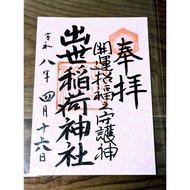 奉拝
開運招福之守護神
出世稲荷神社
令和八年四月十六日